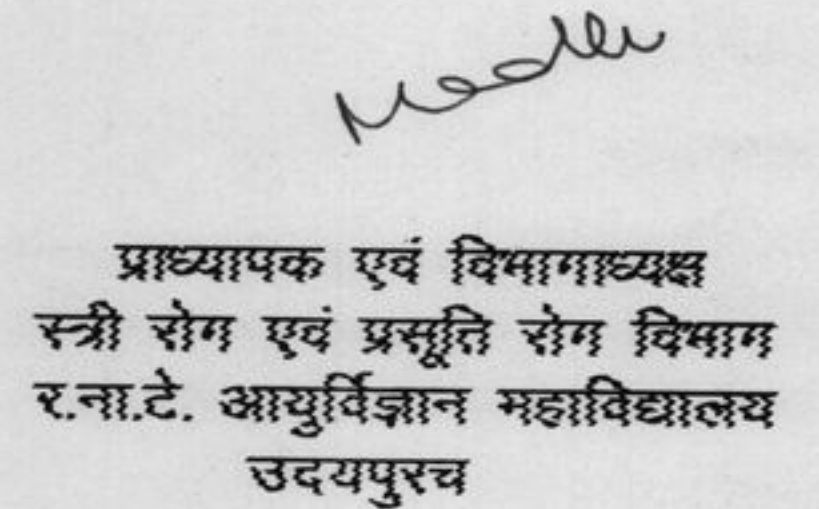 प्राध्यापक एवं विभागाध्यक्ष
स्त्री रोग एवं प्रसूति रोग विभाग
र.ना.टे. आयुर्विज्ञान महाविद्यालय
उदयपुरच